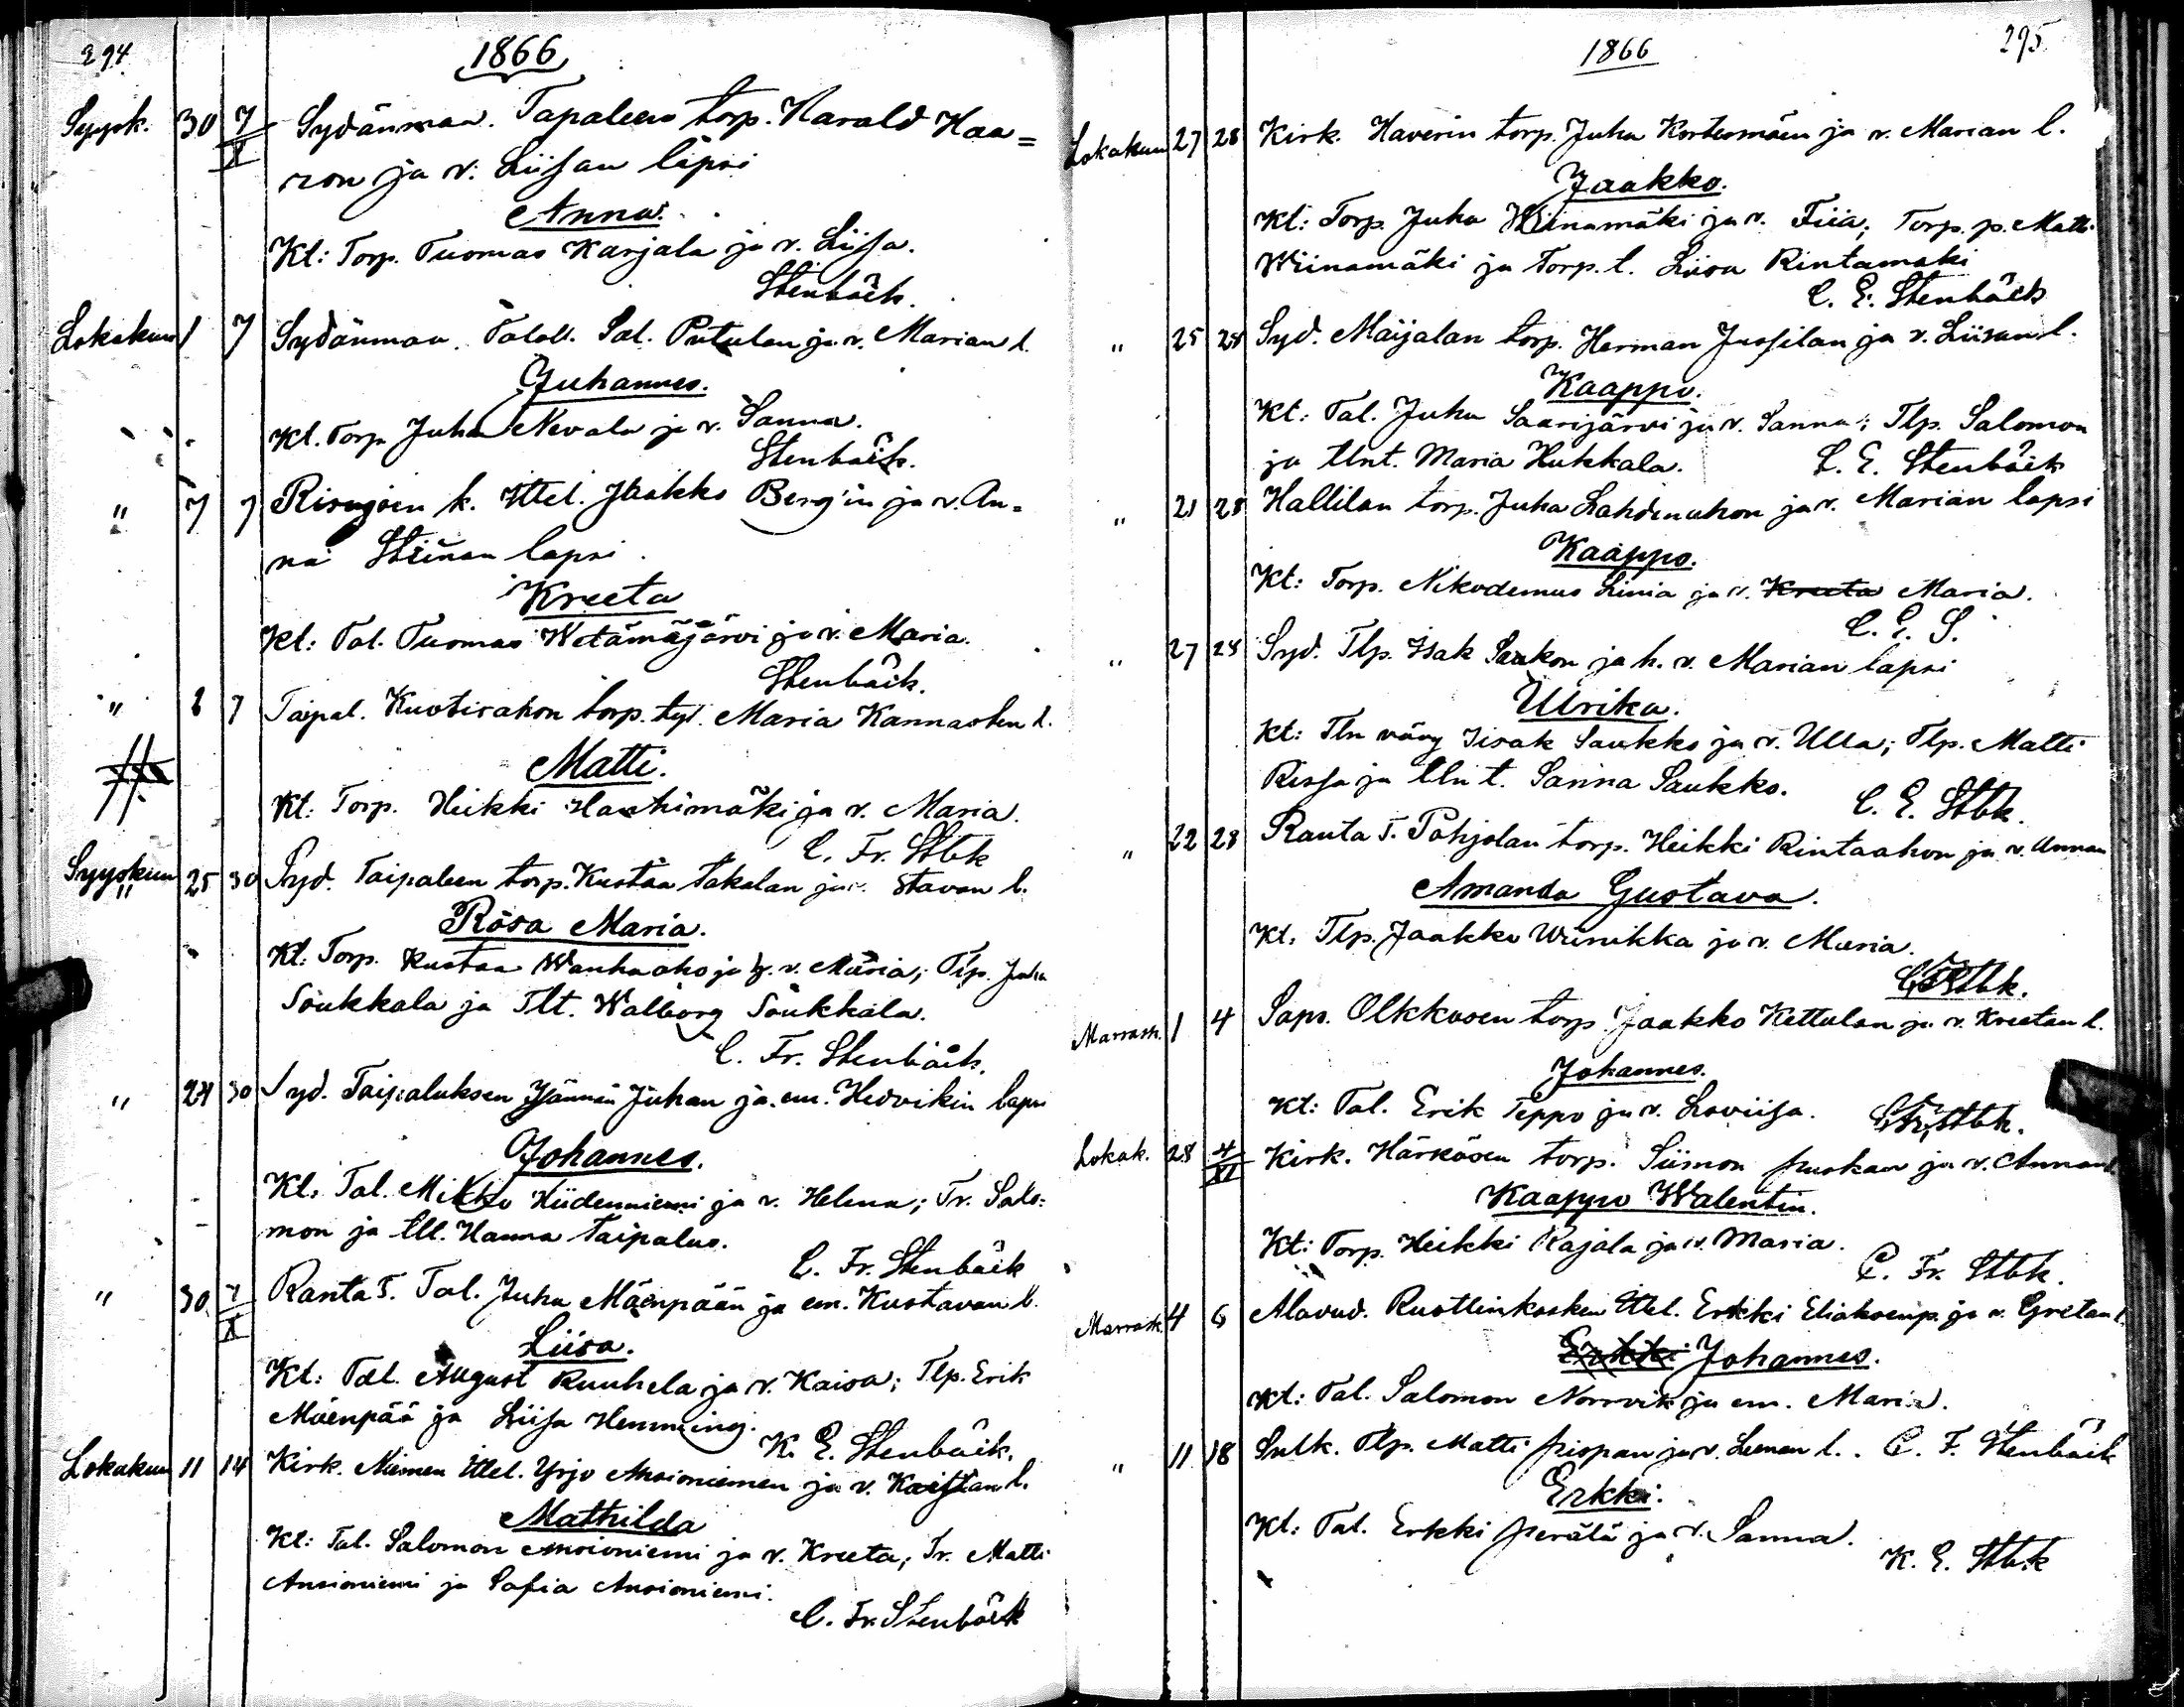 294
1866
Syysk. 30 7/X Sydänmaa. Tapaleen torp. Harald Haa=
ron ja v. Liisan lapsi
Anna.
Kt: Torp. Tuomas Karjala ja v. Liisa.
Stenbäck.
Lokakuu 1 7 Sydänmaa. Taloll. Sal. Putulan ja v. Marian l.
Juhannes.
Kt. Torp. Juha Nevala ja v. Sanna.
Stenbäck.
" 7 7 Risujoen k. Ittel. Jaakko Berg'in ja v. An=
na Stiinan lapsi.
Kreeta
Kt: Tal. Tuomas Wetämäjärvi ja v. Maria.
Stenbäck.
" 2 7 Taipal. Kuotisahon torp. tyt. Maria Kannasten l.
Matti.
Kt: Torp. Heikki Haehimäki ja v. Maria.
C. Fr. Stbk
Syyskuu 25 30 Syd. Taipaleen torp. Kustaa Takalan ja v. Stavan l.
Rosa Maria.
Kt: Torp. Kustaa Wanhaaho ja h. v. Maria; Tlp. Juha
Soukkala ja Tlt. Walborg Soukkala.
C. Fr. Stenbäck.
" 24 30 Syd. Taipaluksen Isännän Juhan ja em. Hedvikin lapsi
Johannes.
Kt: Tal. Mikko Hiidenniemi ja v. Helena; Tr. Salo=
mon ja tll. Hanna Taipalus.
C. Fr. Stenbäck
" 30 7/X Ranta T. Tal. Juha Mäenpään ja em. Kustavan l.
Liisa.
Kt: Tal. August Ruuhela ja v. Kaisa; Tlp. Erik
Mäenpää ja Liisa Hemming.
K. E. Stenbäck.
Lokakuu 11 14 Kirk. Niemen Ittel. Yrjö Ansioniemen ja v. Kaisan l.
Mathilda
Kt: Tal. Salomon Ansioniemi ja v. Kreeta; Tr. Matti
Ansioniemi ja Sofia Ansioniemi.
C. Fr. Stenbäck
295
1866
Lokakuu 27 28 Kirk. Haverin torp. Juha Kortesmäen ja v. Marian l.
Jaakko.
Kt: Torp. Juha Wiinamäki ja v. Fiia; Torp. p. Matti
Wiinamäki ja Torp. t. Liisa Rintamäki
C. E. Stenbäck
" 25 28 Syd. Maijalan torp. Herman Jussilan ja v. Liisan l.
Kaappo.
Kt: Tal. Juha Saarijärvi ja v. Sanna; Tlp. Salomon
ja tlnt. Maria Hukkala.
C. E. Stenbäck
" 21 28 Hallilan torp. Juha Lahdenahon ja v. Marian lapsi
Kaappo.
Kt: Torp. Nikodemus Linia ja v. Kreeta Maria.
C. E. S.
" 27 28 Syd. Tlp. Isak Saukon ja h. v. Marian lapsi
Ulrika.
Kt: Tln vävy Iisak Saukko ja v. Ulla; Tlp. Matti
Rissa ja tln t. Sanna Saukko.
C. E. Stbk.
" 22 28 Ranta T. Pohjolan torp. Heikki Rintaahon ja v. Annan
Amanda Gustava.
Kt. Tlp. Jaakko Wiinikka ja v. Maria.
C. Fr. Stbk.
Marrask. 1 4 Saps. Olkkosen torp. Jaakko Kettulan ja v. Kreetan l.
Johannes.
Kt: Tal. Erik Teppo ja v. Loviisa.
C. Fr. Stbk.
Lokak. 28 4/XI Kirk. Härkösen torp. Siimon Puskan ja v. Annan l.
Kaappo Walentin.
Kt: Torp. Heikki Rajala ja v. Maria.
C. Fr. Stbk.
Marrask. 4 6 Alavud. Ruotlinkosken Ittel. Erkki Eliaksenp. ja v. Gretan l.
Erkki Johannes.
Kt: Tal. Salomon Norrvik ja em. Maria.
" 11 18 Sulk. Tlp. Matti Pispan ja v. Leenan l.
C. F. Stenbäck
Erkki.
Kt: Tal. Erkki Perälä ja v. Sanna.
K. E. Stbk